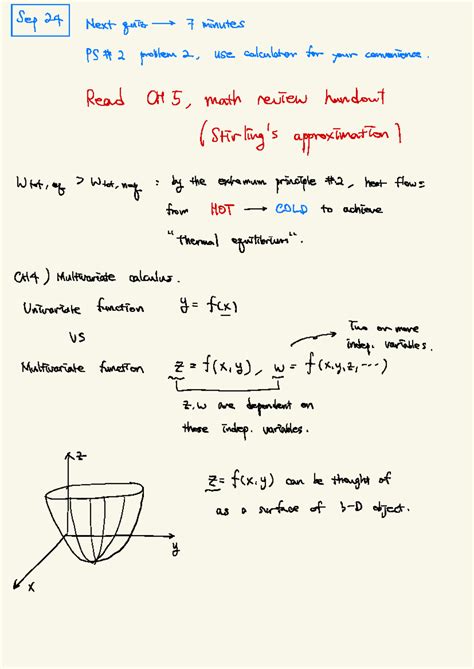 Sep 24
Next quiz → 7 minutes
PS # 2 problem 2, use calculator for your convenience.
Read CH 5, math review handout
(Stirling's approximation)
Wtot, eq > Wtot, neq : by the extremum principle #2, heat flows
from HOT → COLD to achieve
"thermal equilibrium".
CH4) Multivariate calculus.
Univariate function y = f(x)
VS
Two or more
indep. variables.
Multivariate function z = f(x,y), w = f(x,y,z,···)
z, w are dependent on
those indep. variables.
z
y
x
z = f(x,y) can be thought of
as a surface of 3-D object.